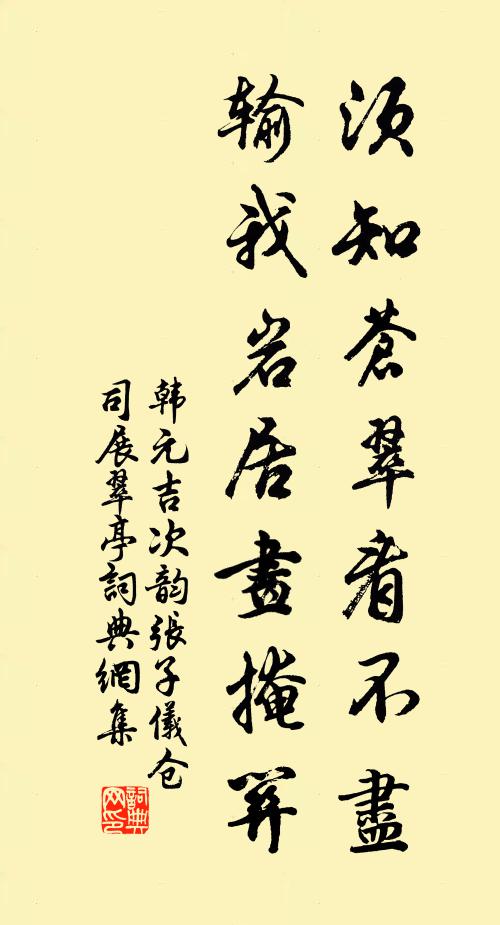 須知蒼翠看不盡
輸我岩居晝掩關
韩元吉次韵張子儀仓
司展翠亭詞典網集
詞典
网印